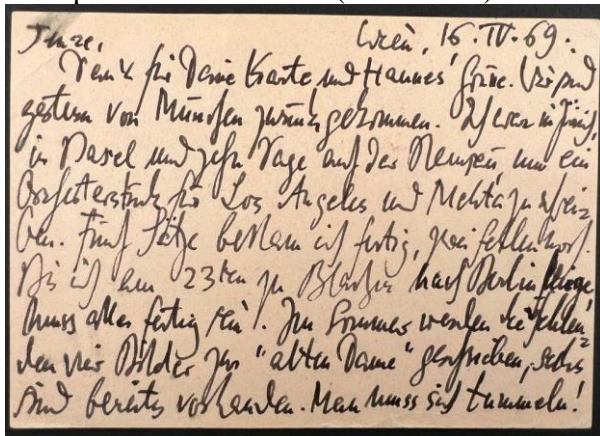 Wien, 16.IV.69.
Dank für Deine Karte und Hannes' Grüsse. Wir sind
gestern von München zurückgekommen. Ich war in Zürich,
in Basel und zehn Tage auf der um ein
Orchesterstück für Los Angeles und Mehta zu schrei-
ben. Fünf Sätze bekam ich fertig, zwei fehlen noch.
Bis ich am 23ten zu Blacher nach Berlin fliege,
muss alles fertig sein! Im Sommer werden die fehlen-
den vier Bilder zur "alten Dame" geschrieben, sechs
sind bereits vorhanden. Man muss sich tummeln!